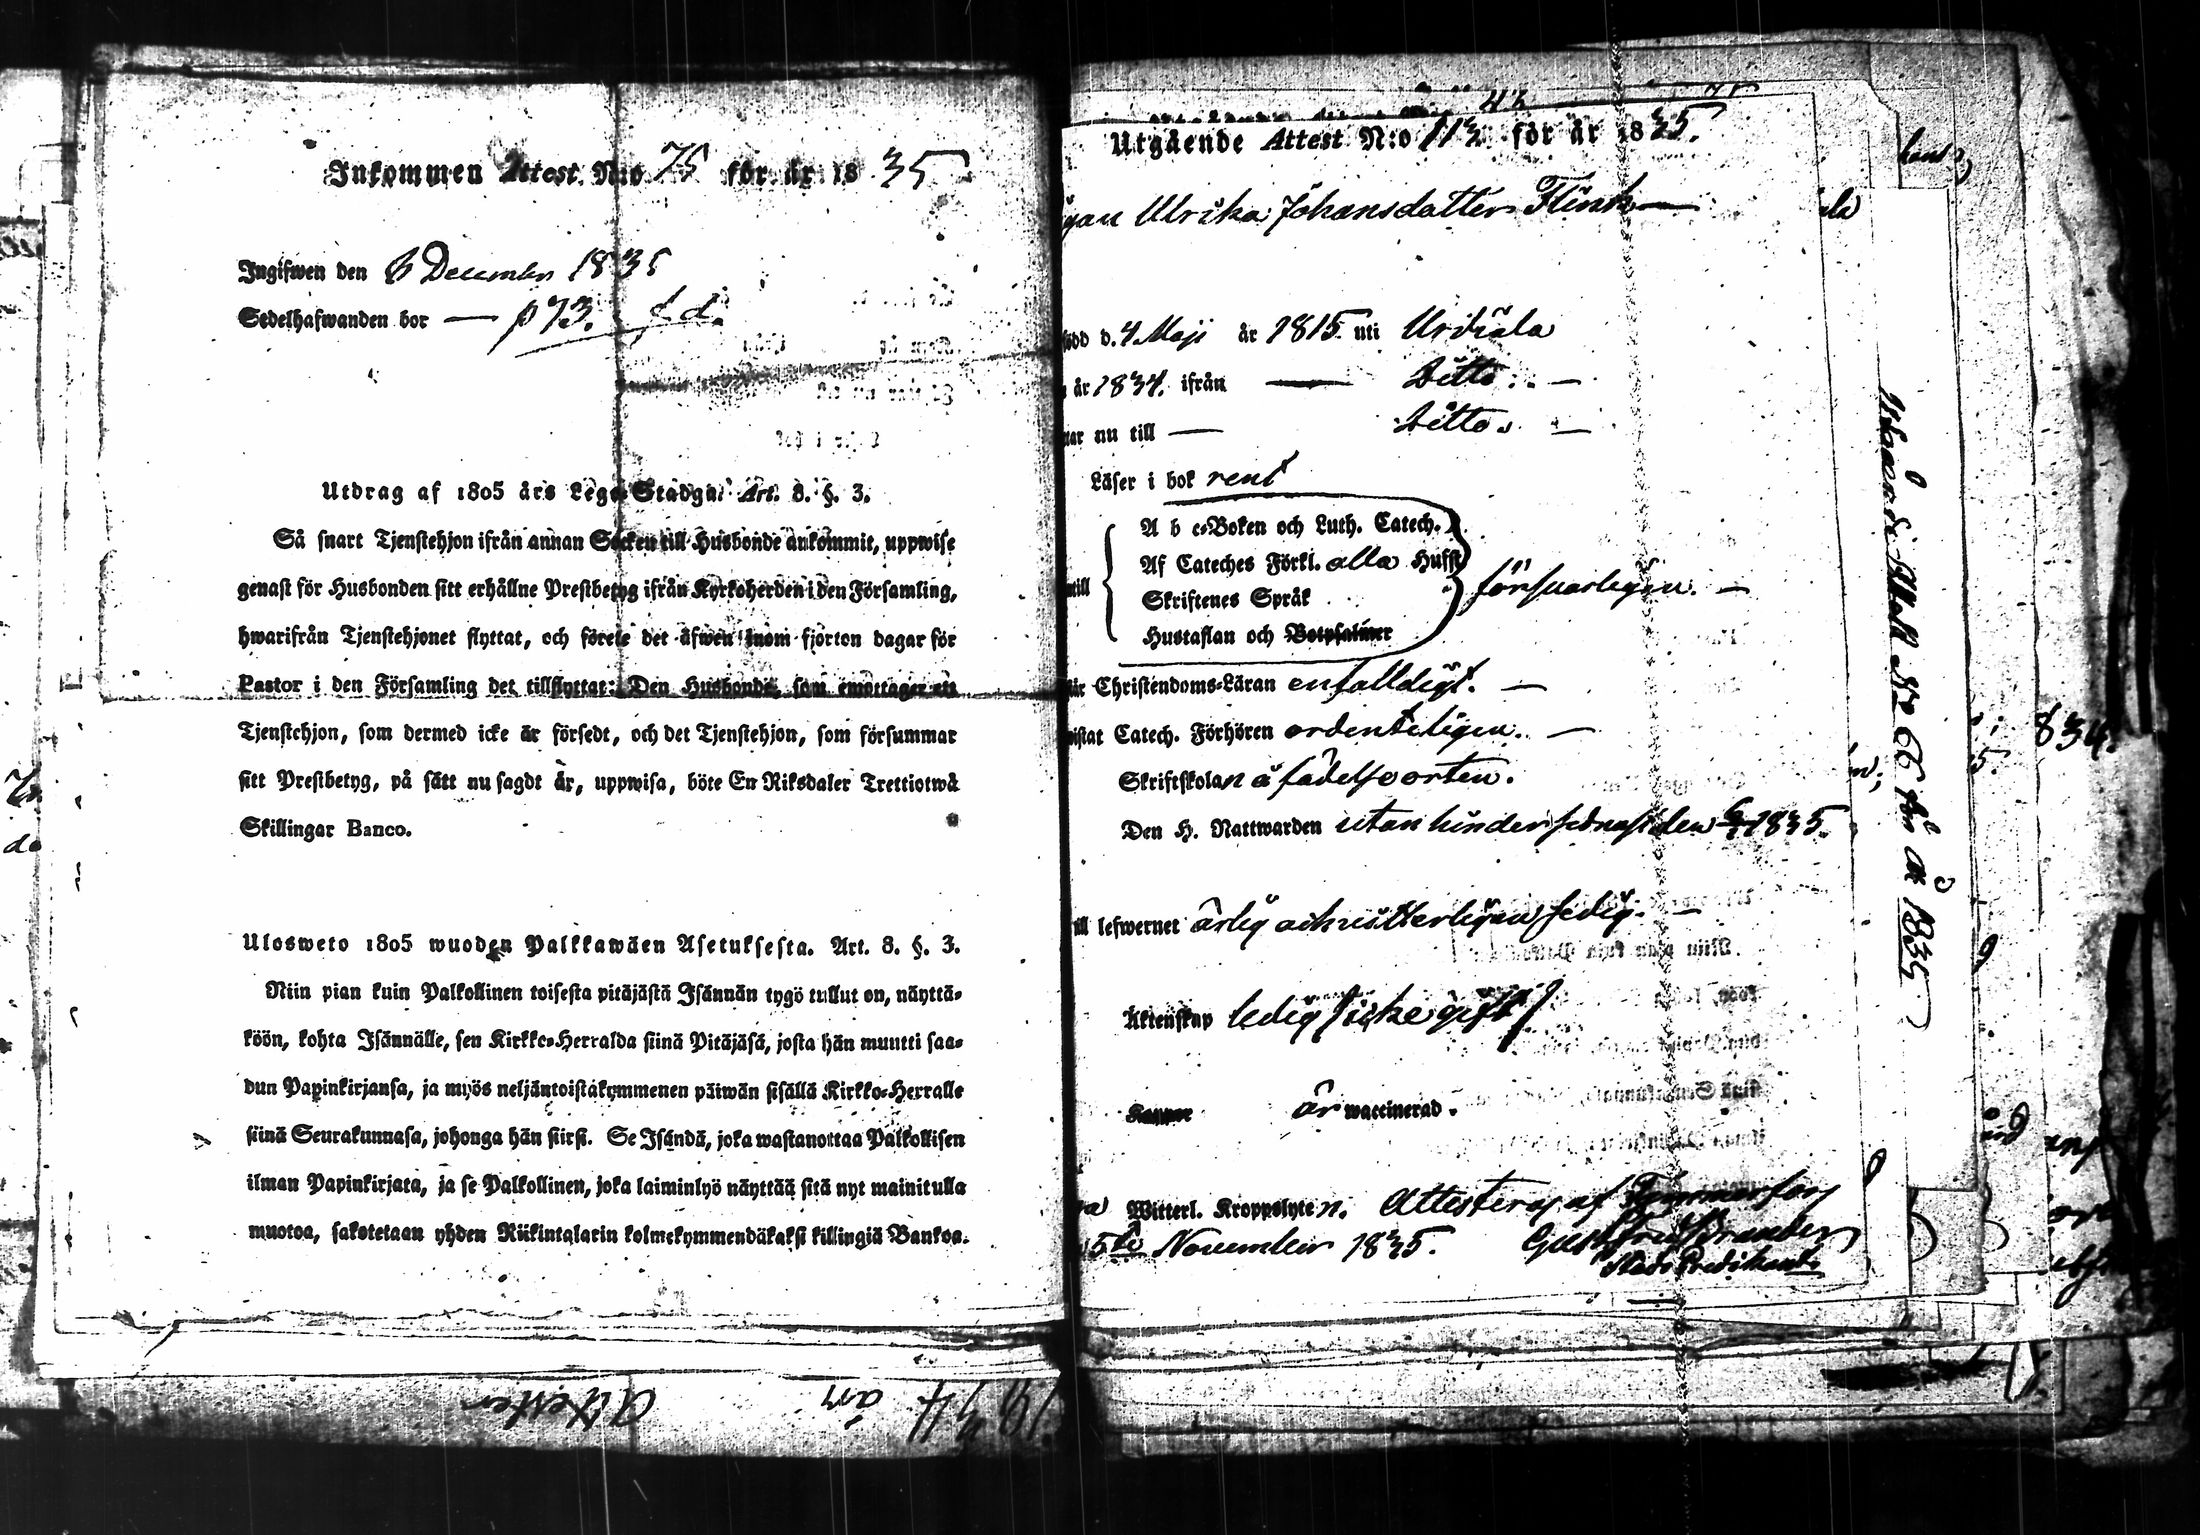 Inkommen Attest N:o 75 för år 1835
Ingifwen den 6 December 1835
Sedelhafwanden bor — p 73. f. d.
Utdrag af 1805 års Lego Stadga. Art. 8. §. 3.
Så snart Tjenstehjon ifrån annan Socken till Husbonde ankommit, uppwise
genast för Husbonden sitt erhållne Prestbetyg ifrån Kyrkoherden i den Församling,
hwarifrån Tjenstehjonet flyttat, och förete det äfwen inom fjorton dagar för
Pastor i den Församling det tillflyttat: Den Husbonde, som emottager ett
Tjenstehjon, som dermed icke är försedt, och det Tjenstehjon, som försummar
sitt Prestbetyg, på sätt nu sagdt är, uppwisa, böte En Riksdaler Trettiotwå
Skillingar Banco.
Ulosweto 1805 wuoden Palkkawäen Asetuksesta. Art. 8. §. 3.
Niin pian kuin Palkollinen toisesta pitäjästä Isännän tygö tullut on, näyttä-
köön, kohta Isännälle, sen Kirkko-Herralda siinä Pitäjäsä, josta hän muutti saa-
dun Papinkirjansa, ja myös neljäntoistakymmenen päiwän sisällä Kirkko-Herralle
siinä Seurakunnasa, johonga hän siirsi. Se Isändä, joka wastanottaa Palkollisen
ilman Papinkirjata, ja se Palkollinen, joka laiminlyö näyttää sitä nyt mainitulla
muotoa, sakotetaan yhden Riikintalarin kolmekymmendäkaksi killingiä Bankoa.
1834 års Attester
Utgående Attest N:o 113 för år 1835.
Ulrika Johansdotter Flink —
född d. 4 Maji år 1815 uti Urdiala
år 1834. ifrån — Ditto. —
nu till — Ditto. —
Läser i bok rent
A b c-Boken och Luth. Catech.
Af Cateches Förkl. alla Hufst
Skriftenes Språk
Hustaflan och Botpsalmer
försvarligen. —
Christendoms-Läran enfalldigt. —
Catech. Förhören ordenteligen. —
Skriftskolan å födelseorten.
Den H. Nattwarden utan hinder sednast den 1835.
till lefwernet ärlig och sedig. —
Äktenskap ledig icke gift
Koppor är waccinerad.
Witterl. Kroppslyten. Attesteras af Tammerfors
15de November 1835. Gust. Brander
Stads Predikant.
Utgående Attest No 66 för år 1835
834.